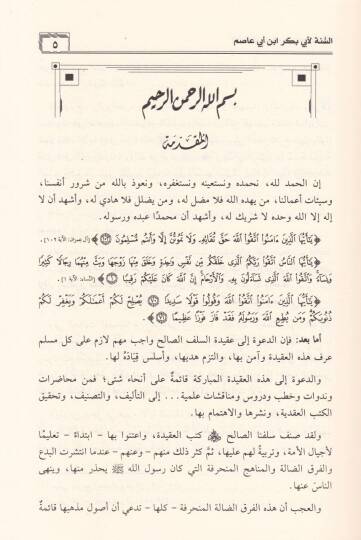 السُّنة لأبي بكر ابن أبي عاصم
٥
بسم الله الرحمن الرحيم
المقدمة
إن الحمد لله، نحمده ونستعينه ونستغفره، ونعوذ بالله من شرور أنفسنا،
وسيئات أعمالنا، من يهده الله فلا مضل له، ومن يضلل فلا هادي له، وأشهد أن لا
إله إلا الله وحده لا شريك له، وأشهد أن محمدًا عبده ورسوله.
﴿يَٰٓأَيُّهَا ٱلَّذِينَ ءَامَنُوا۟ ٱتَّقُوا۟ ٱللَّهَ حَقَّ تُقَاتِهِۦ وَلَا تَمُوتُنَّ إِلَّا وَأَنتُم مُّسْلِمُونَ ﴿١٠٢﴾﴾ [آل عمران: الآية ١٠٢].
﴿يَٰٓأَيُّهَا ٱلنَّاسُ ٱتَّقُوا۟ رَبَّكُمُ ٱلَّذِى خَلَقَكُم مِّن نَّفْسٍ وَٰحِدَةٍ وَخَلَقَ مِنْهَا زَوْجَهَا وَبَثَّ مِنْهُمَا رِجَالًا كَثِيرًا
وَنِسَآءً وَٱتَّقُوا۟ ٱللَّهَ ٱلَّذِى تَسَآءَلُونَ بِهِۦ وَٱلْأَرْحَامَ إِنَّ ٱللَّهَ كَانَ عَلَيْكُمْ رَقِيبًا ﴿١﴾﴾ [النساء: الآية ١].
﴿يَٰٓأَيُّهَا ٱلَّذِينَ ءَامَنُوا۟ ٱتَّقُوا۟ ٱللَّهَ وَقُولُوا۟ قَوْلًا سَدِيدًا ﴿٧٠﴾ يُصْلِحْ لَكُمْ أَعْمَٰلَكُمْ وَيَغْفِرْ لَكُمْ
ذُنُوبَكُمْ وَمَن يُطِعِ ٱللَّهَ وَرَسُولَهُۥ فَقَدْ فَازَ فَوْزًا عَظِيمًا ﴿٧١﴾﴾.
أما بعد: فإن الدعوة إلى عقيدة السلف الصالح واجب مهم لازم على كل مسلم
عرف هذه العقيدة وآمن بها، والتزم هديها، وأسلس قِيَادَهُ لها.
والدعوة إلى هذه العقيدة المباركة قائمةٌ على أنحاء شتى؛ فمن محاضرات
وندوات وخطب ودروس ومناقشات علمية... إلى التأليف، والتصنيف، وتحقيق
الكتب العقدية، ونشرها والاهتمام بها.
ولقد صنف سلفنا الصالح كتب العقيدة، واعتنوا بها - ابتداءً - تعليمًا
لأجيال الأمة، وتربيةً لهم عليها، ثمَّ كثر ذلك منهم - وعنهم - عندما انتشرت البدع
والفرق الضالة والمناهج المنحرفة التي كان رسول الله ﷺ يحذر منها، وينهى
الناسَ عنها.
والعجب أن هذه الفرق الضالة المنحرفة - كلها - تدعي أن أصول مذهبها قائمةٌ